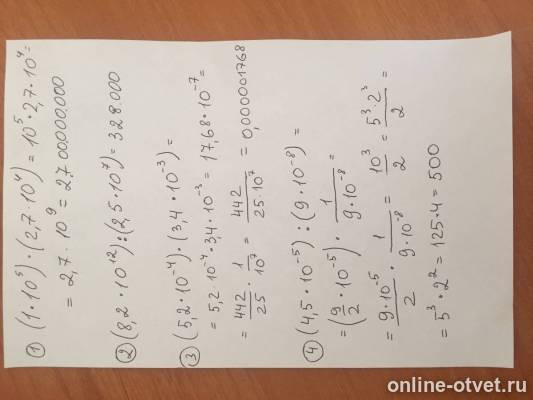 ① (1·10⁵)·(2,7·10⁴) = 10⁵·2,7·10⁴ =
= 2,7·10⁹ = 2700.000.000
② (8,2·10¹²):(2,5·10⁷) = 328.000
③ (5,2·10⁻⁴)·(3,4·10⁻³) =
= 5,2·10⁻⁴·3,4·10⁻³ = 17,68·10⁻⁷ =
= 442/25 · 1/10⁷ = 442/25·10⁷ = 0,000001768
④ (4,5·10⁻⁵):(9·10⁻⁸) =
= (9/2·10⁻⁵)· 1/9·10⁻⁸
= 9·10⁻⁵/2 · 1/9·10⁻⁸ = 10³/2 = 5³·2³/2 =
= 5³·2² = 125·4 = 500
online-otvet.ru